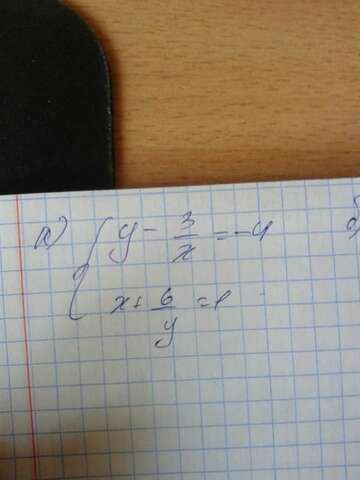 а) { y - 3/x = -4
x + 6/y = 1
б)